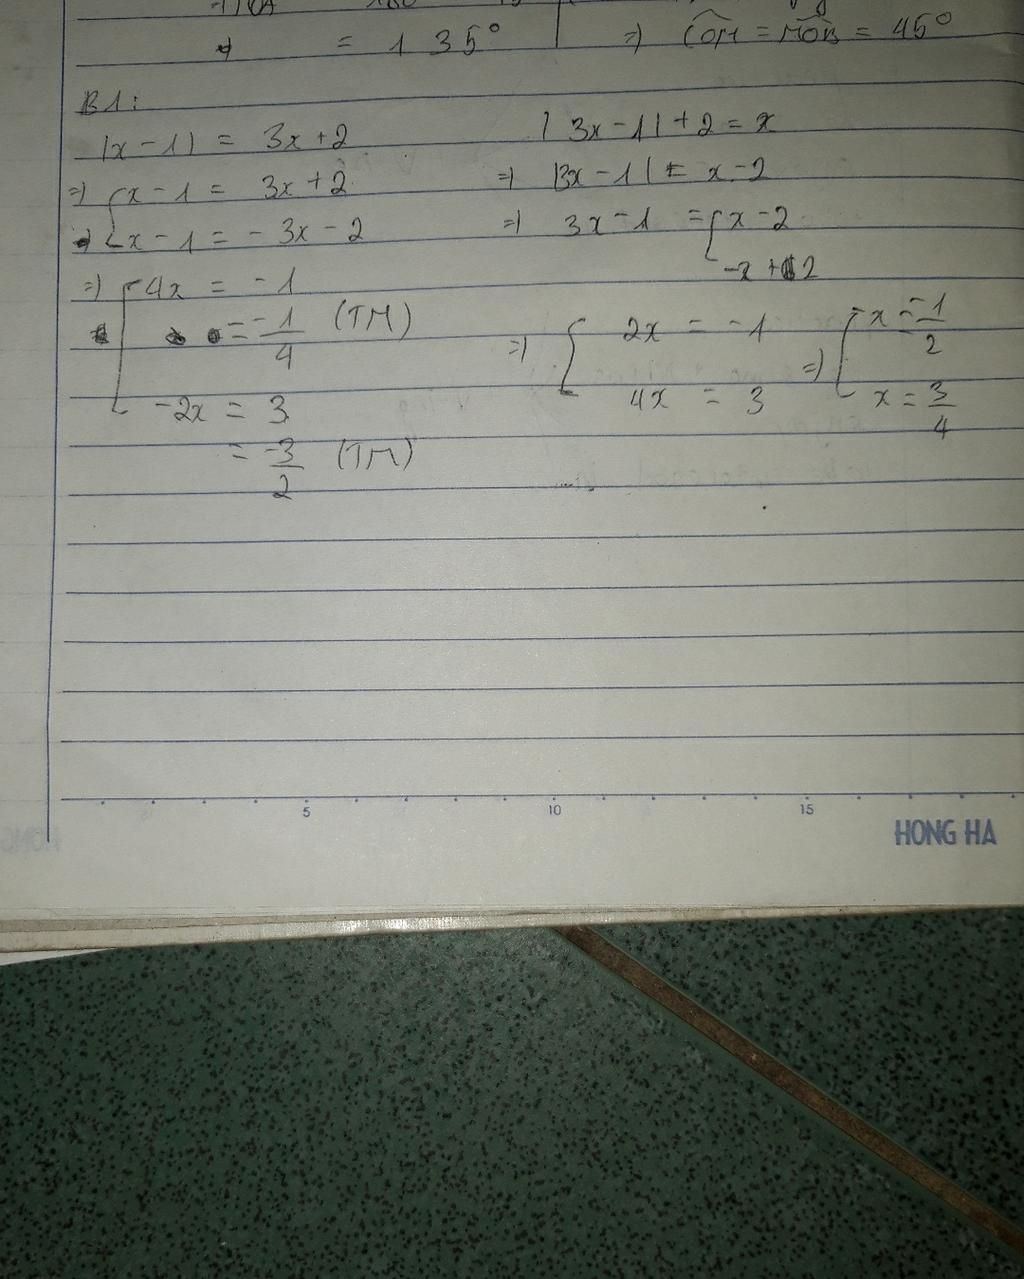 = 135°
=> COM = MOB = 45°
B1:
|x - 1| = 3x + 2
=> x - 1 = 3x + 2
x - 1 = - 3x - 2
=> 4x = -1
= -1/4 (TM)
-2x = 3
= -3/2 (TM)
| 3x - 1| + 2 = x
=> |3x - 1| = x - 2
=> 3x - 1 = x - 2
-x + 2
=> 2x = -1 => x = -1/2
4x = 3 x = 3/4
5 10 15
HONG HA